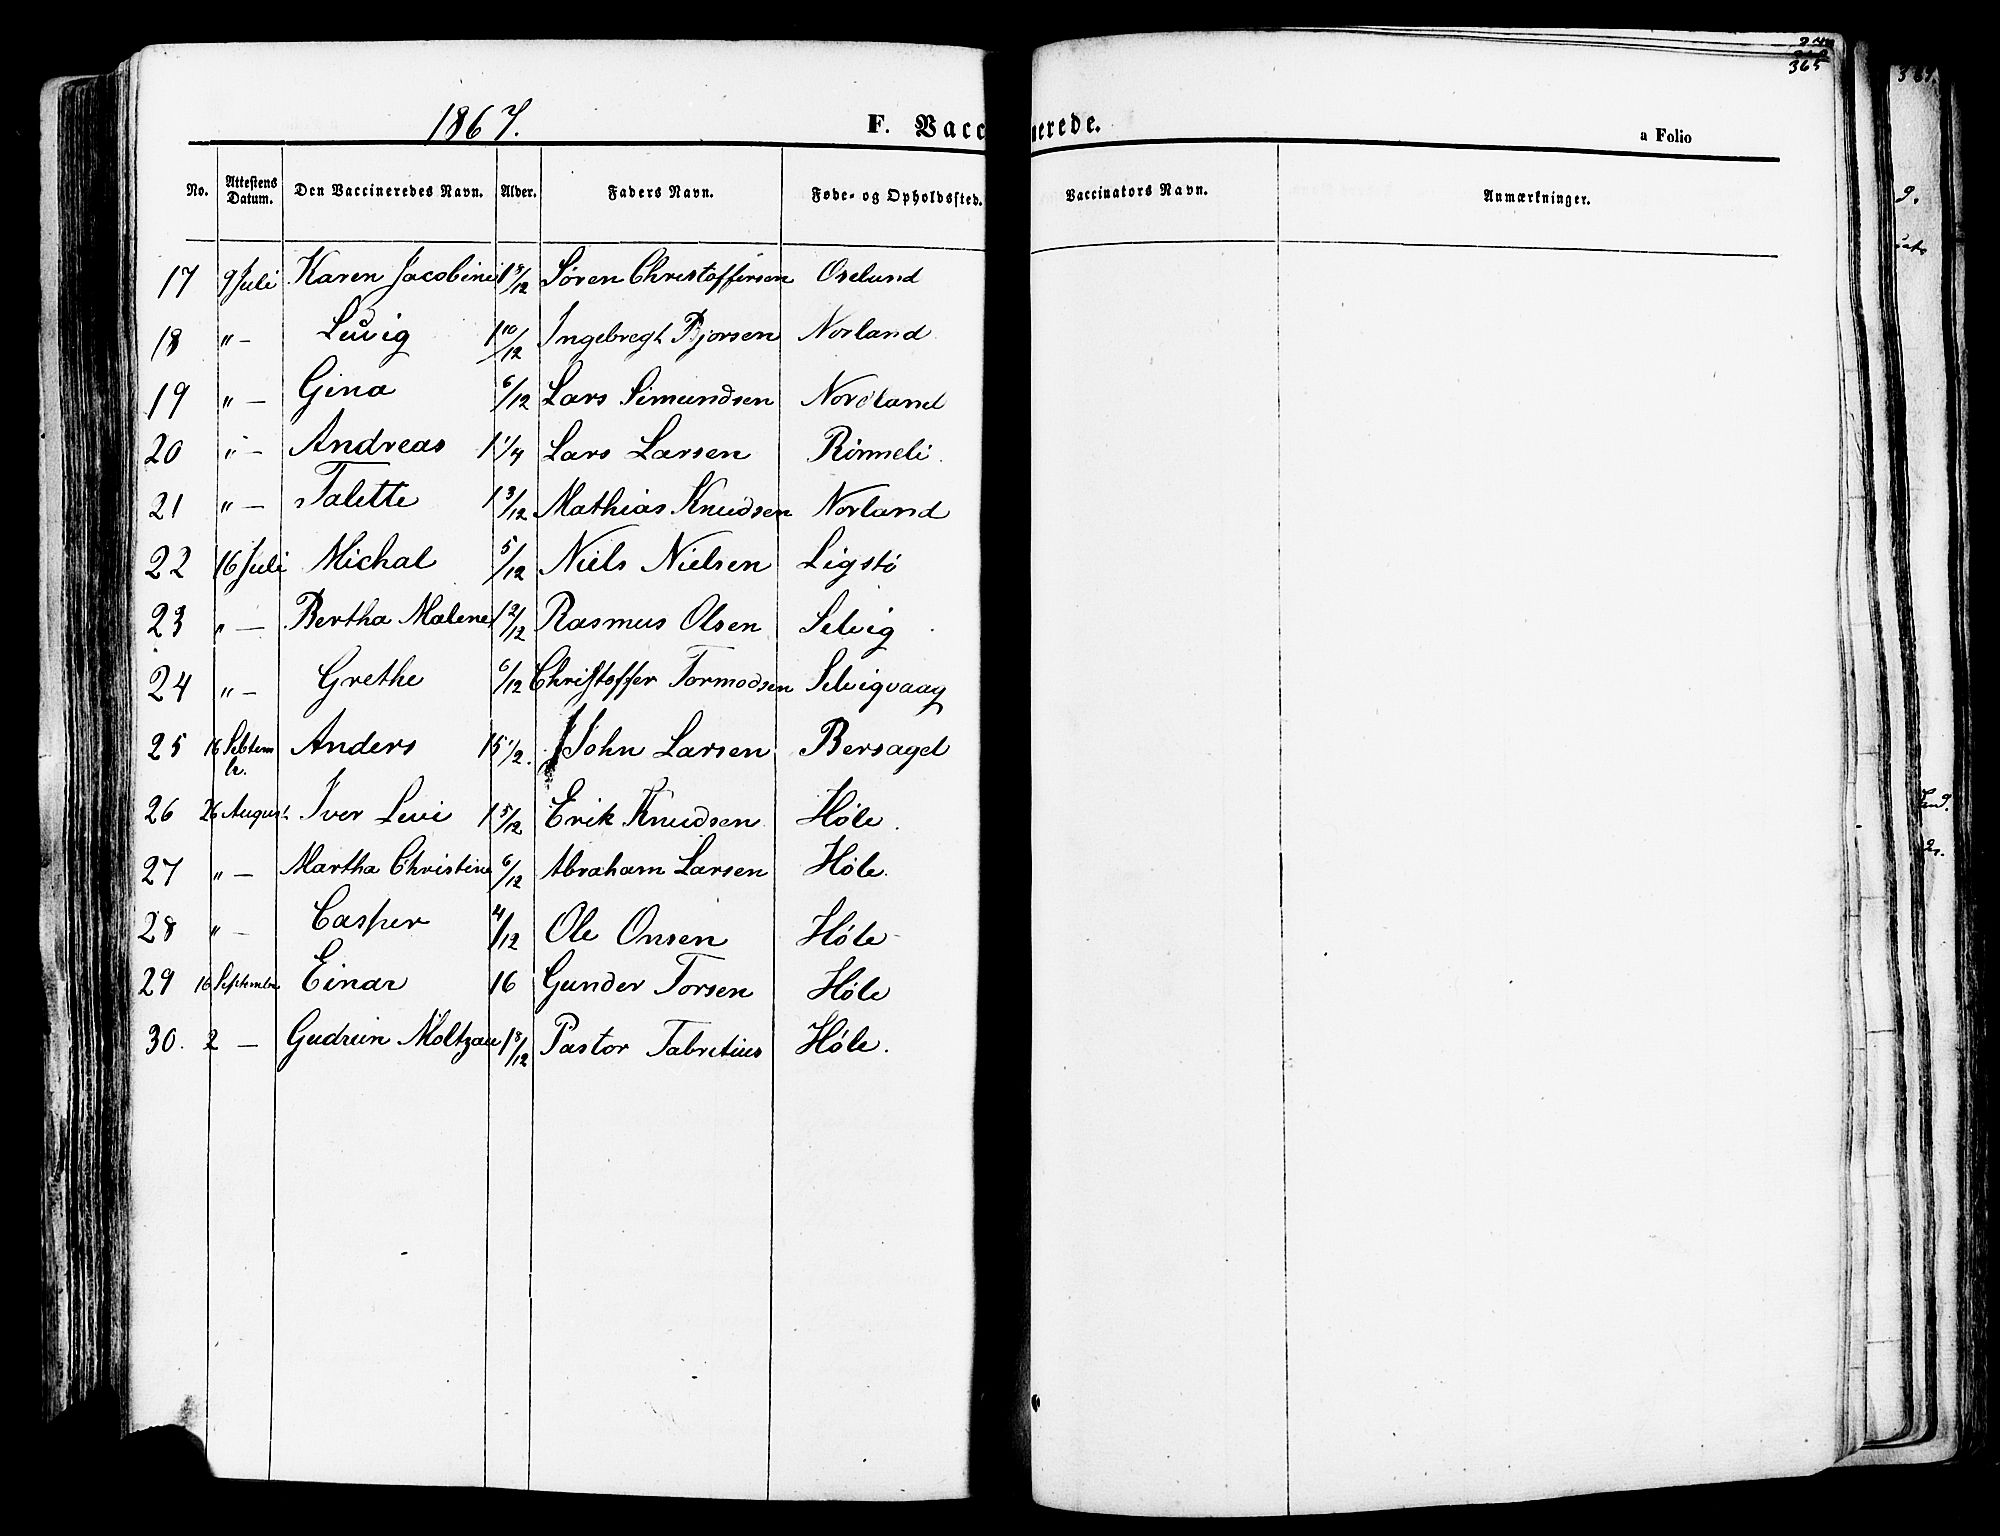 365
1867.
F. Vaccinerede.
a Folio
No. Attestens Datum. Den Vaccineredes Navn. Alder. Faders Navn. Føde- og Opholdssted. Vaccinators Navn. Anmærkninger.
17 9 Juli Karen Jacobine 1 3/12 Søren Christoffersen Oselund
18 "- Luvig 1 10/12 Ingebregt Bjorsen Norland
19 "- Gina 6/12 Lars Simundsen Nordland
20 "- Andreas 1 1/4 Lars Larsen Rönneli.
21 "- Talette 1 3/12 Mathias Knudsen Norland
22 16 Juli Michal 5/12 Niels Nielsen Ligstö
23 "- Bertha Malene 1 2/12 Rasmus Olsen Selvig
24 "- Grethe 6/12 Christoffer Tormodsen Selvigvaag
25 16 Sebtembr. Anders 15 1/2. John Larsen Bersagel
26 26 August Iver Levi 1 5/12 Erik Knudsen Høle.
27 "- Martha Christine 6/12 Abraham Larsen Høle.
28 "- Casper 4/12 Ole Onsen Høle
29 16 Septembr. Einar 16 Gunder Torsen Høle
30. 2 - Gudrun Moltzau 1 8/12 Pastor Fabritius Høle.